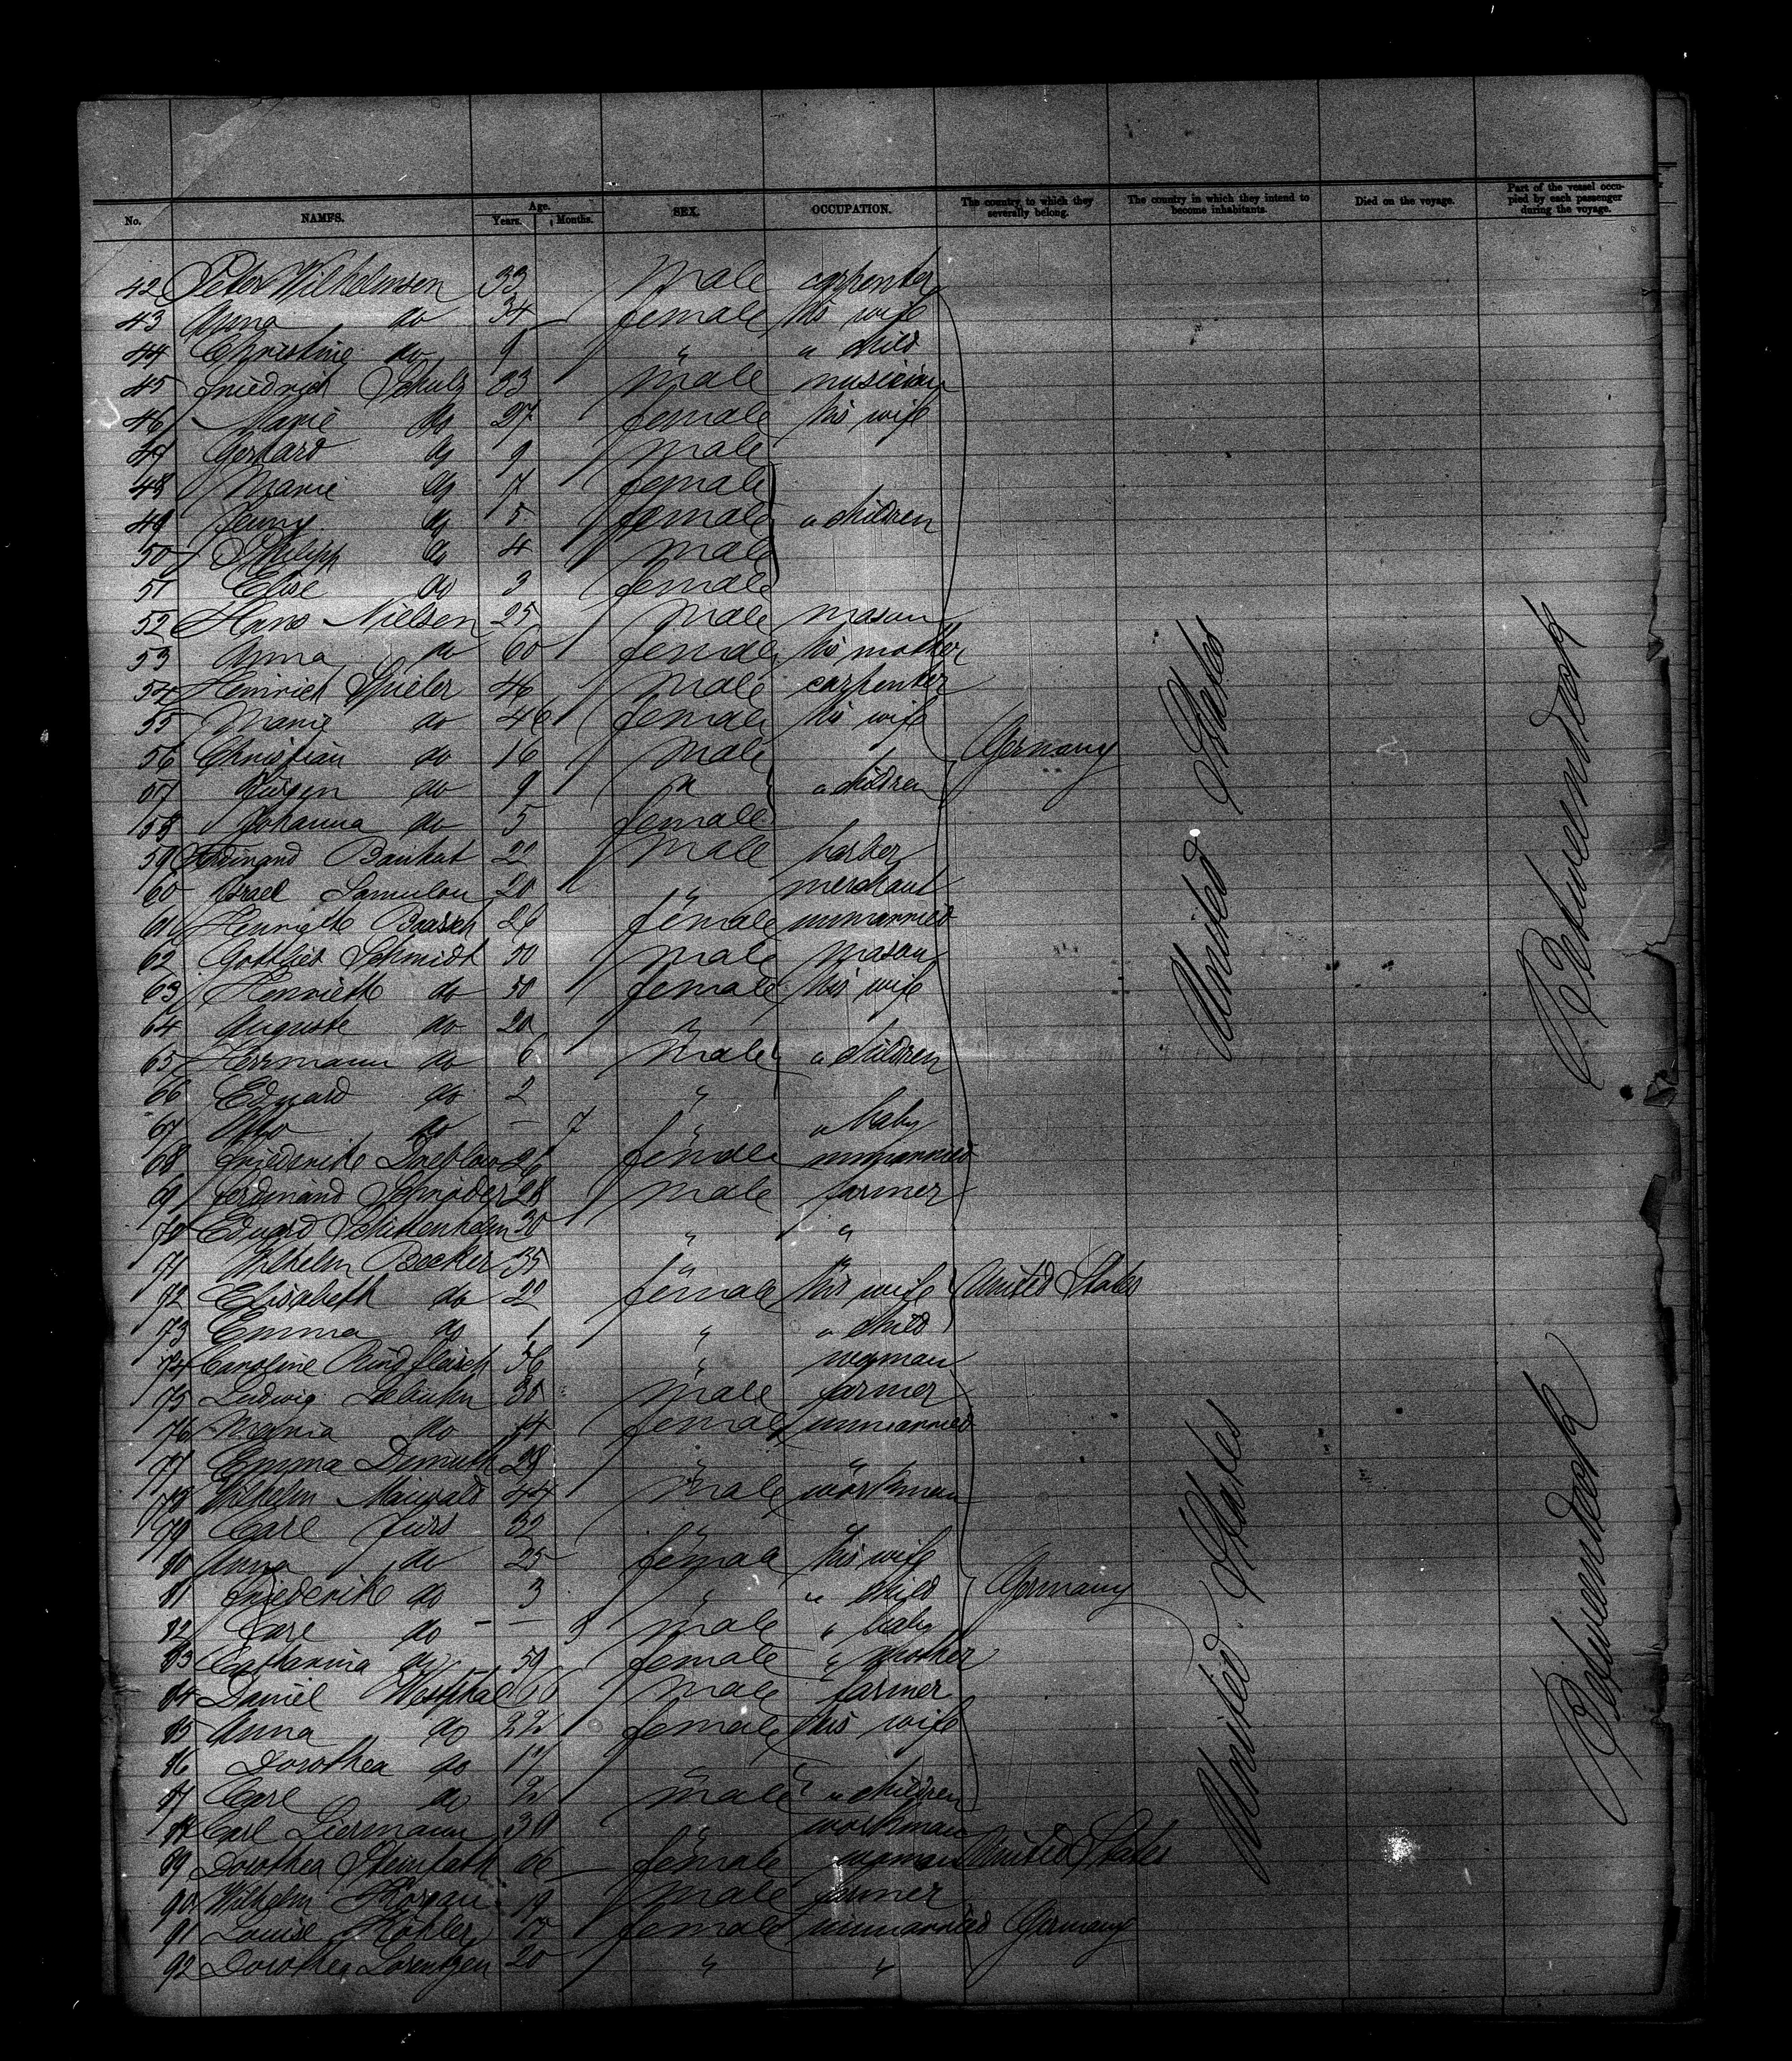 No. NAMES. Age. Years. Months. SEX. OCCUPATION. The country to which they severally belong. The country in which they intend to become inhabitants. Died on the voyage. Part of the vessel occupied by each passenger during the voyage.
42 Peter Wilhelmsen 33 male carpenter
43 Anna do 34 female his wife
44 Christine do 9 " " child
45 Friedrich Schulz 33 male musician
46 Marie do 27 female his wife
47 Gerhard do 9 male
48 Marie do 7 female
49 Jenny do 5 female " children
50 Philipp do 4 male
51 Elise do 3 female
52 Hans Nielsen 25 male mason
53 Anna do 60 female his mother
54 Heinrich Spieler 46 male carpenter
55 Marie do 46 female his wife
56 Christian do 16 male Germany
57 Jürgen do 9 " " children
58 Johanna do 5 female
59 Ferdinand 22 male barber
60 Israel Samulon 20 " merchant
61 Henriette Baasch 26 female unmarried
62 Gottlieb Schmidt 50 male mason
63 Henriette do 50 female his wife
64 Auguste do 20 "
65 Herrmann do 6 male " children
66 Eduard do 2 "
67 Otto do – 7 " " baby
68 Friederike 26 female unmarried
69 Ferdinand Schröder 28 male farmer
70 Eduard Schittenhelm 30 " "
71 Wilhelm Becker 35 " "
72 Elisabeth do 22 female his wife United States
73 Emma do 1 " " child
74 Caroline Rindfleisch 56 " woman
75 Ludwig 30 male farmer
76 Maria do female unmarried
77 Emma Demuth 29 " "
78 Wilhelm Maiwald 44 male workman
79 Carl Jürs 30 " "
80 Anna do 25 female his wife
81 Friederike do 3 " " child Germany
82 Carl do – – male " baby
83 Catharina do 59 female " mother
84 Daniel Westphal male farmer
85 Anna do 22 female his wife
86 Dorothea do "
87 Carl do 2 male " children
88 Carl Liermann 30 " workman
89 Dorothea female woman United States
90 Wilhelm 19 male farmer
91 Louise Köhler 17 female unmarried Germany
92 Dorothea Lorentzen 20 " "
United States
Betweendeck
United States
Betweendeck